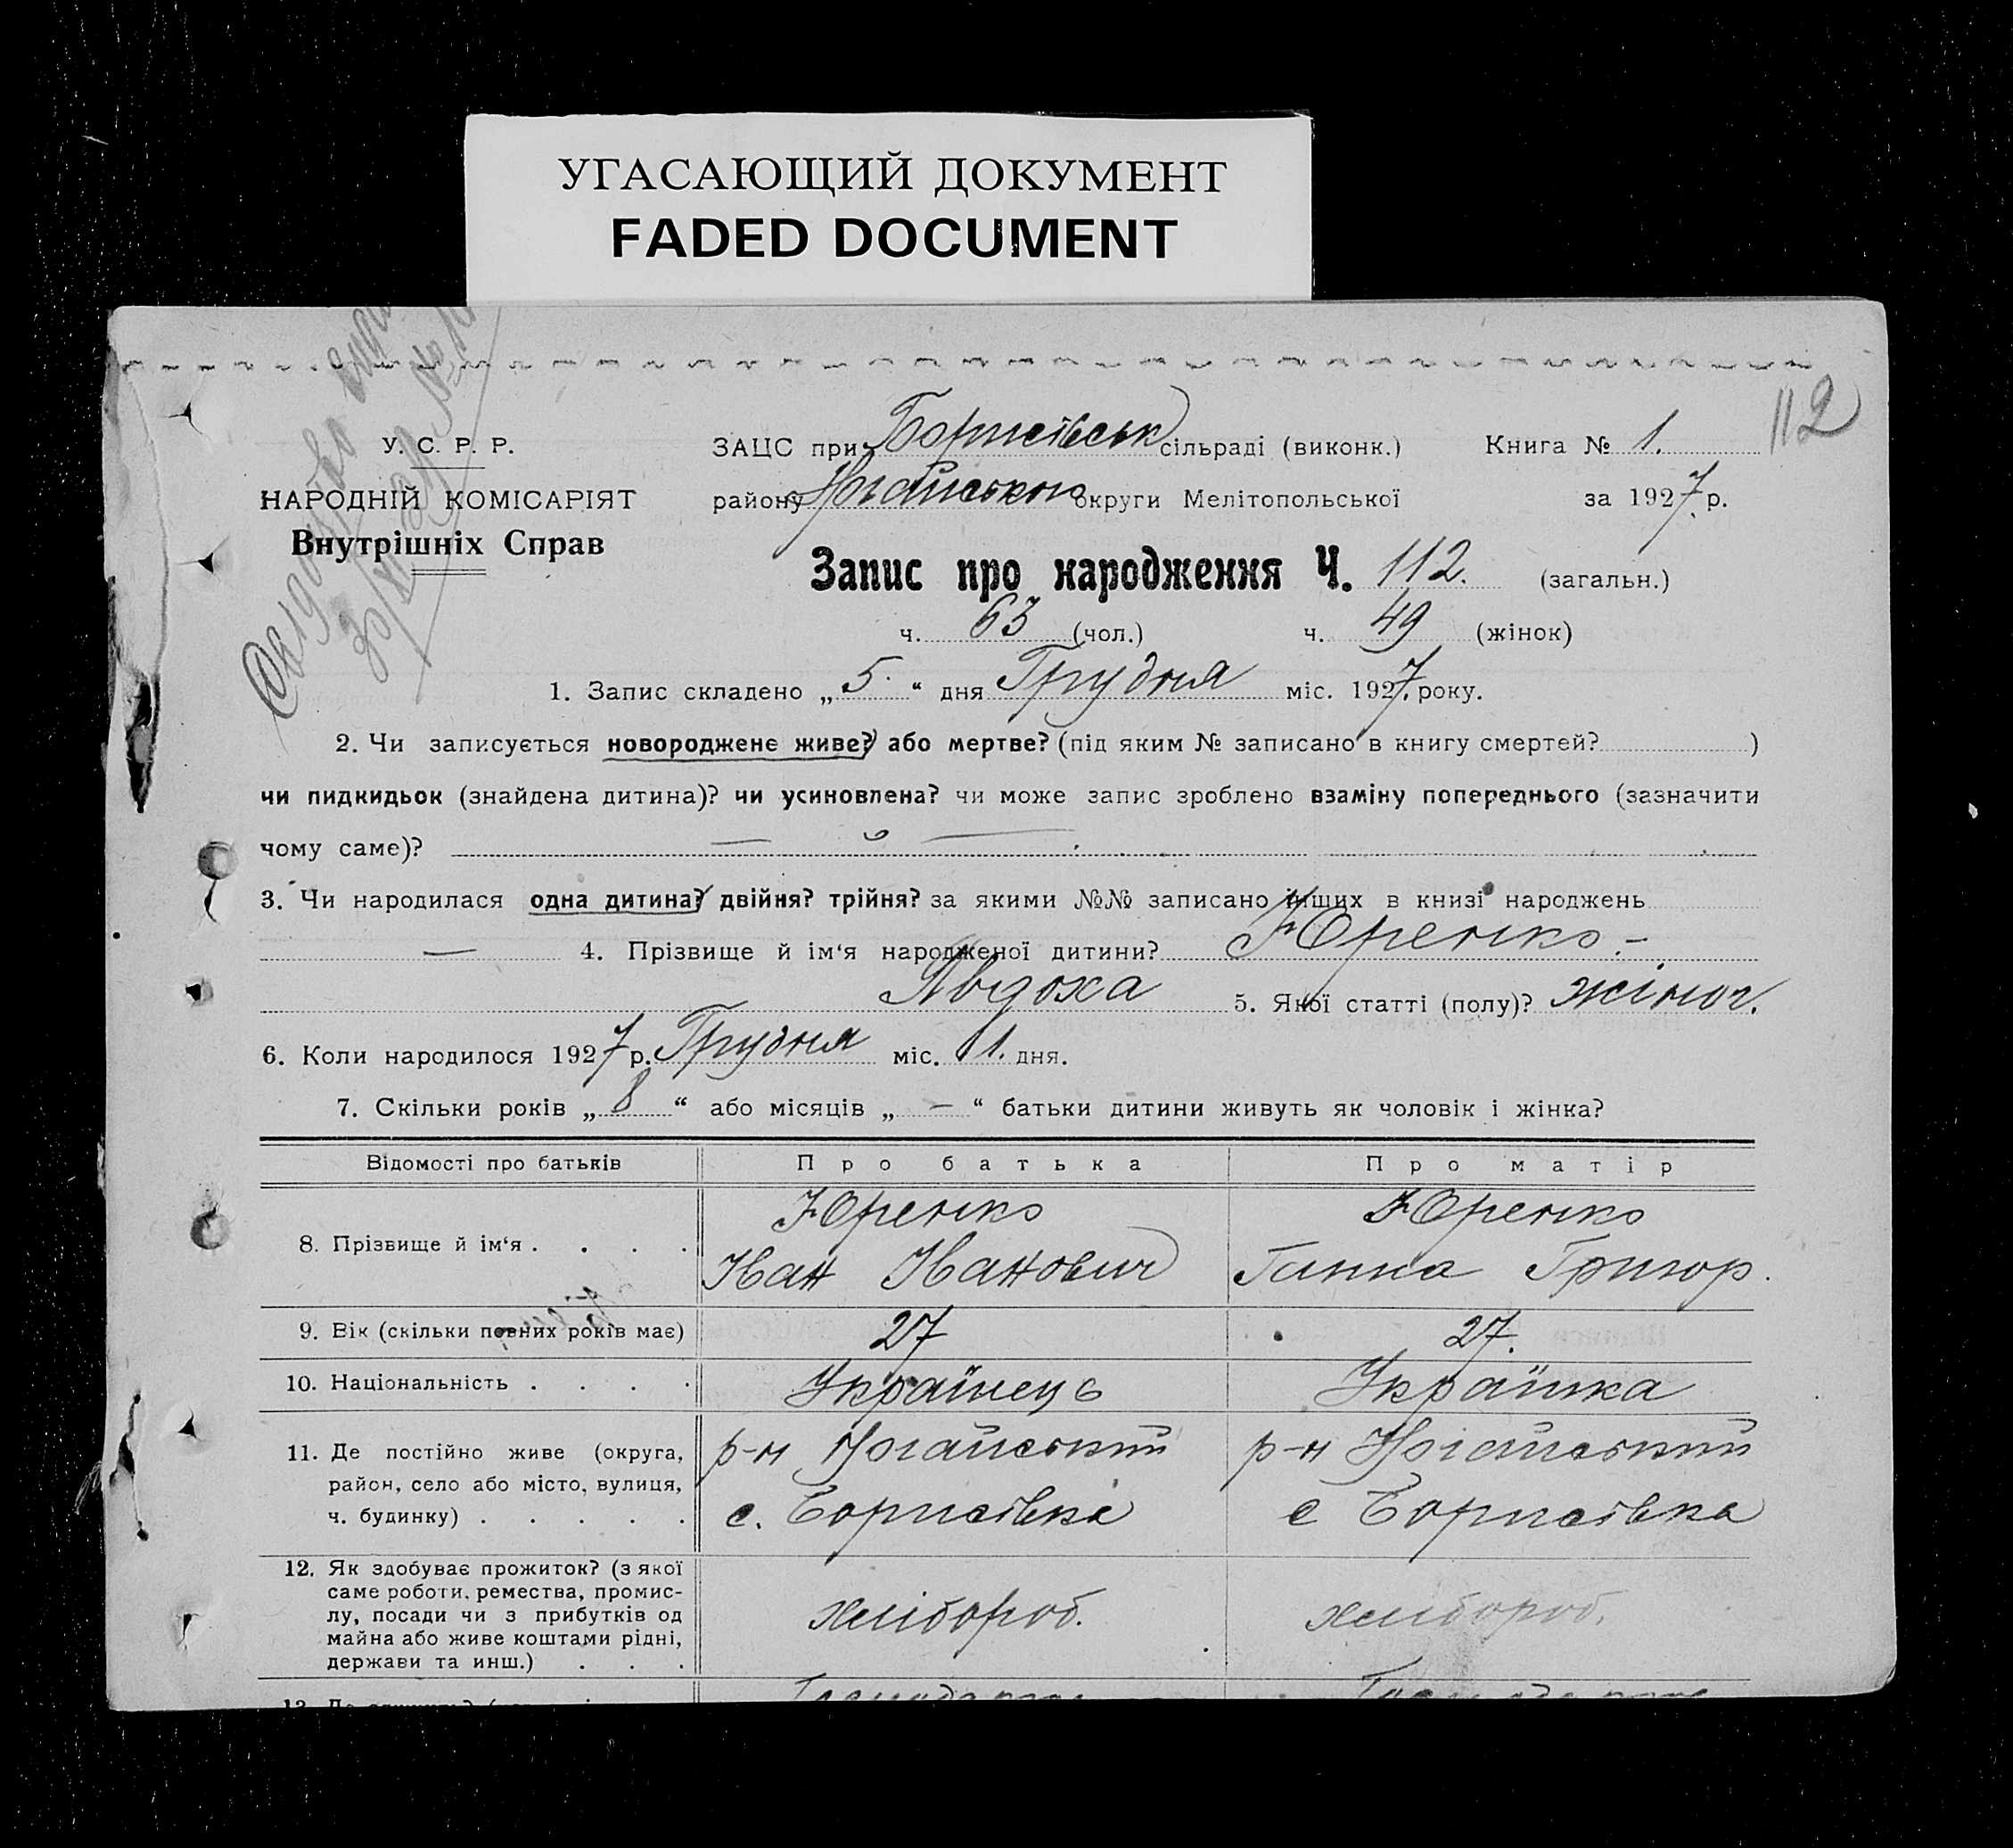 УГАСАЮЩИЙ ДОКУМЕНТ
FADED DOCUMENT
112
У. С. Р. Р.
НАРОДНІЙ КОМІСАРІЯТ
Внутрішніх Справ
ЗАЦС при Борисівськ сільраді (виконк.) Книга № 1.
району Ногайської округи Мелітопольської за 1927 р.
Запис про народження Ч. 112. (загальн.)
ч. 63 (чол.) ч. 49 (жінок)
1. Запис складено „ 5. “ дня Грудня міс. 1927. року.
2. Чи записується новороджене живе? або мертве? (під яким № записано в книгу смертей? )
чи пидкидьок (знайдена дитина)? чи усиновлена? чи може запис зроблено взаміну попереднього (зазначити
чому саме)? —
3. Чи народилася одна дитина? двійня? трійня? за якими №№ записано інших в книзі народжень
— 4. Прізвище й ім‘я народженої дитини? Юренко -
Явдоха 5. Якої статті (полу)? жіноч.
6. Коли народилося 1927 р. Грудня міс. 1. дня.
7. Скільки років „ 8 “ або місяців „ — “ батьки дитини живуть як чоловік і жінка?
Відомості про батьків Про батька Про матір
8. Прізвище й ім‘я . . . . Юренко Юренко
Иван Иванович Ганна Григор.
9. Вік (скільки повних років має) 27 27.
10. Національність . . . . Українець Українка
11. Де постійно живе (округа, р-н Ногайський р-н Ногайський
район, село або місто, вулиця,
ч. будинку) . . . . . с. Борисівка с Борисівка
12. Як здобуває прожиток? (з якої
саме роботи, ремества, промис-
лу, посади чи з прибутків од хлібороб. хлібороб.
майна або живе коштами рідні,
держави та инш.) . . .